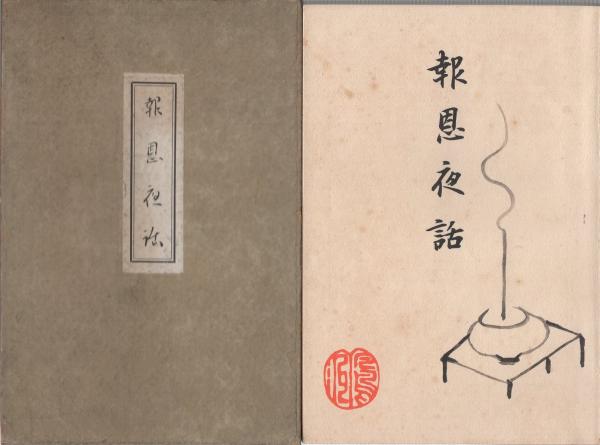 報恩夜話
報恩夜話